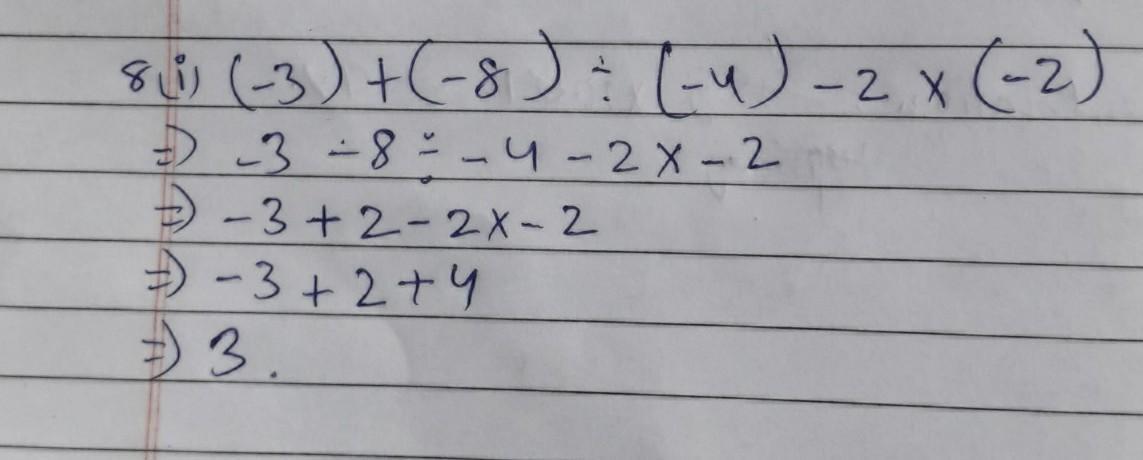 8(i) (-3) + (-8) ÷ (-4) - 2 × (-2)
⇒ -3 - 8 ÷ - 4 - 2 × - 2
⇒ -3 + 2 - 2 × - 2
⇒ -3 + 2 + 4
⇒ 3.